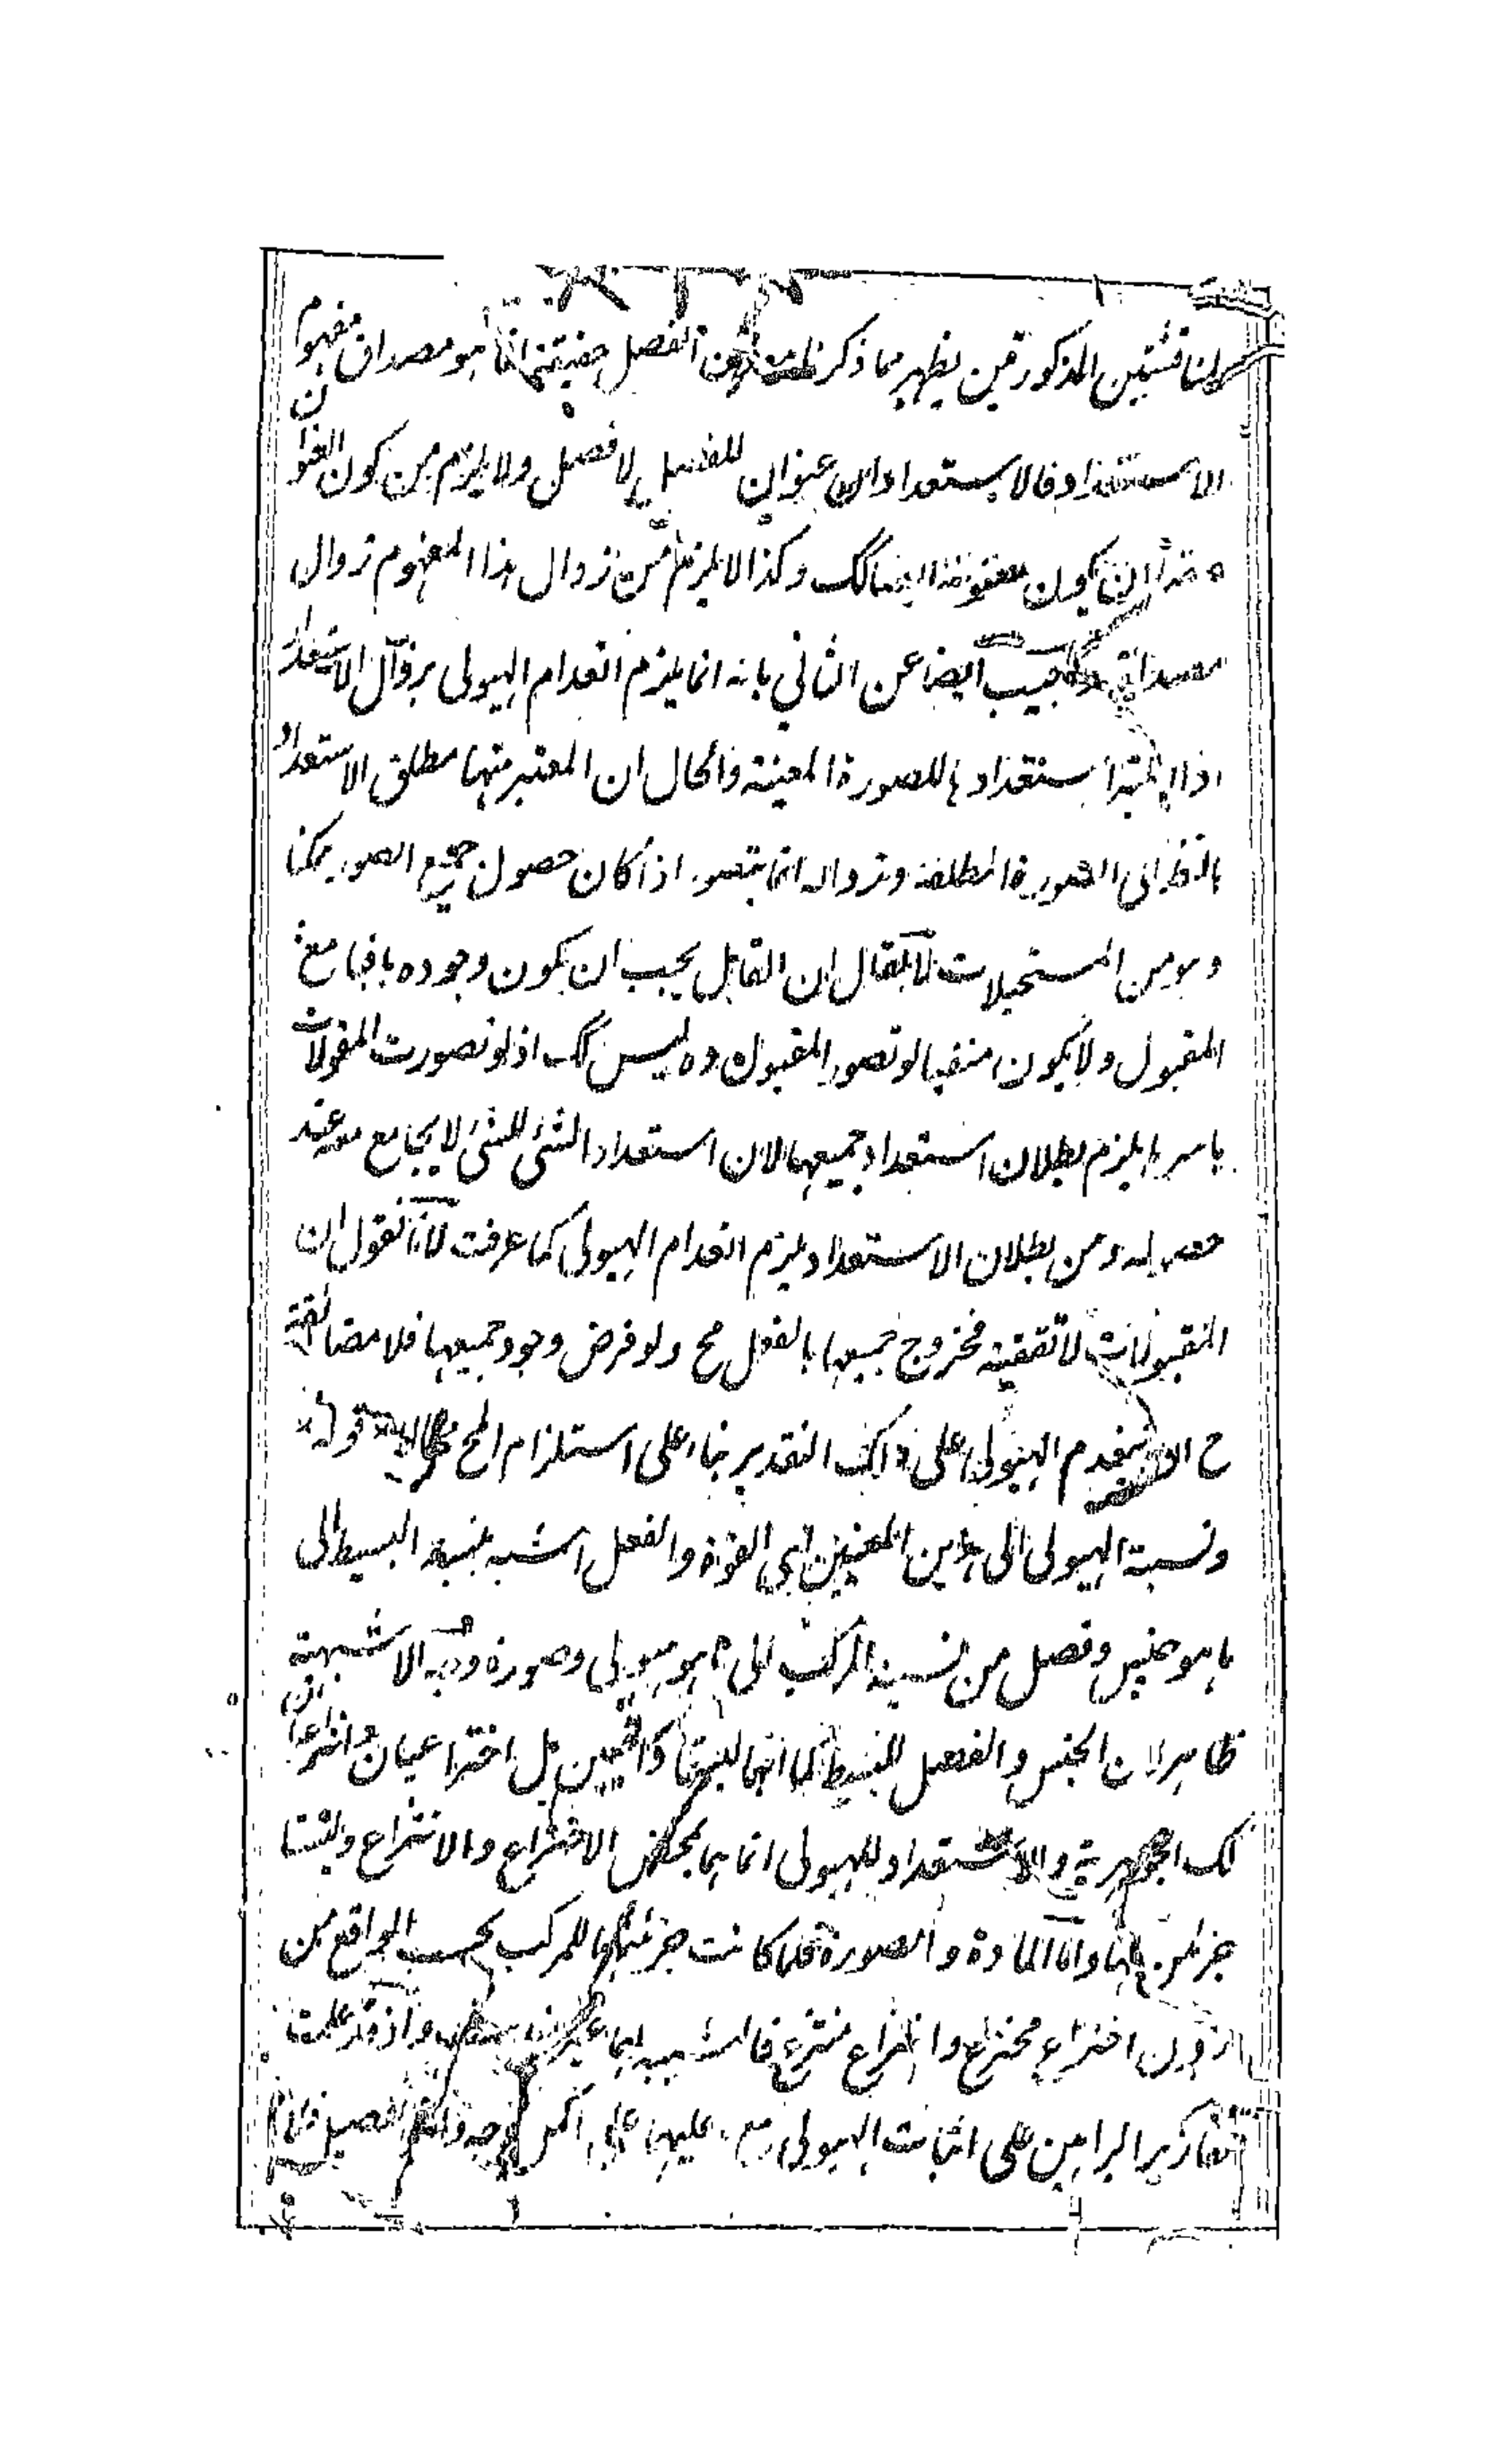 المناقشتين المذكورتين يظهر مما ذكرنا من ان الفصل حقيقة انما هو مصداق مفهوم
الاستعداد فالاستعداد الان عنوان للفصل لا فصل ولا يلزم من كون العنوان
ان يكون معنونة ايضا كك وكذا لا يلزم من زوال هذا المفهوم زوال
مصداقه ايضا عن الثاني بانه انما يلزم انعدام الهيولى بزوال الاستعداد
اذا استعدادها للصورة المعينة والحال ان المعتبر منها مطلق الاستعداد
بالنظر الى الصورة المطلقة وزواله انما يتصور اذا كان حصول جميع الصور ممكنا
وهو من المستحيلات لا يقال ان القابل يجب ان يكون وجوده باقيا مع
المقبول ولا يكون منفيا لو تصور المقبول وه ليس كك اذ لو تصورت المقبولات
باسرها يلزم بطلان استعداد جميعها لان استعداد الشئ للشئ لا يجامع معه عند
حصوله ومن بطلان الاستعداد يلزم انعدام الهيولى كما عرفت لانا نقول ان
المقبولات لا تقفية فخروج جميعها بالفعل مح ولو فرض وجود جميعها فلا مضائقة
ح ان ينعدم الهيولى على ذلك التقدير بناء على استلزام المح قوله
ونسبة الهيولى الى هذين المعنيين اي القوة والفعل اشبه بنسبة البسيط الى
ما هو جنس وفصل من نسبة المركب الى ما هو هيولى وصورة وجه الاشبهية
ظاهر لان الجنس والفصل للبسيط كما انهما ليسا واقعيين بل اختراعيان وانتزاعيان
كك الجوهرية والاستعداد للهيولى انما هما بمحض الاختراع والانتزاع وليستا
جزئين لها واما المادة والصورة فلما كانت جزئيتهما للمركب بحسب الواقع من
دون اختراع مخترع وانتزاع منتزع فالتشبيه بهما غير واذ قد علمت
تقارير البراهين على اثبات الهيولى مع عليها على اكمل وجه واتم تفصيل